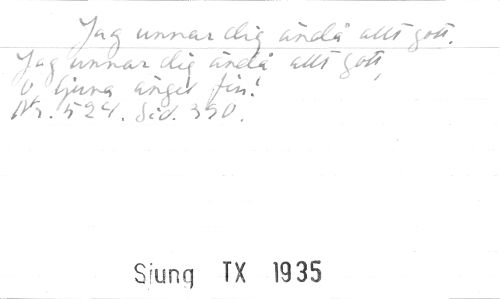 Jag unnar dig ändå allt gott.
Jag unnar dig ändå allt gott,
o ljuva ängel fin!
Nr. 524. Sid. 390.
Sjung TX 1935